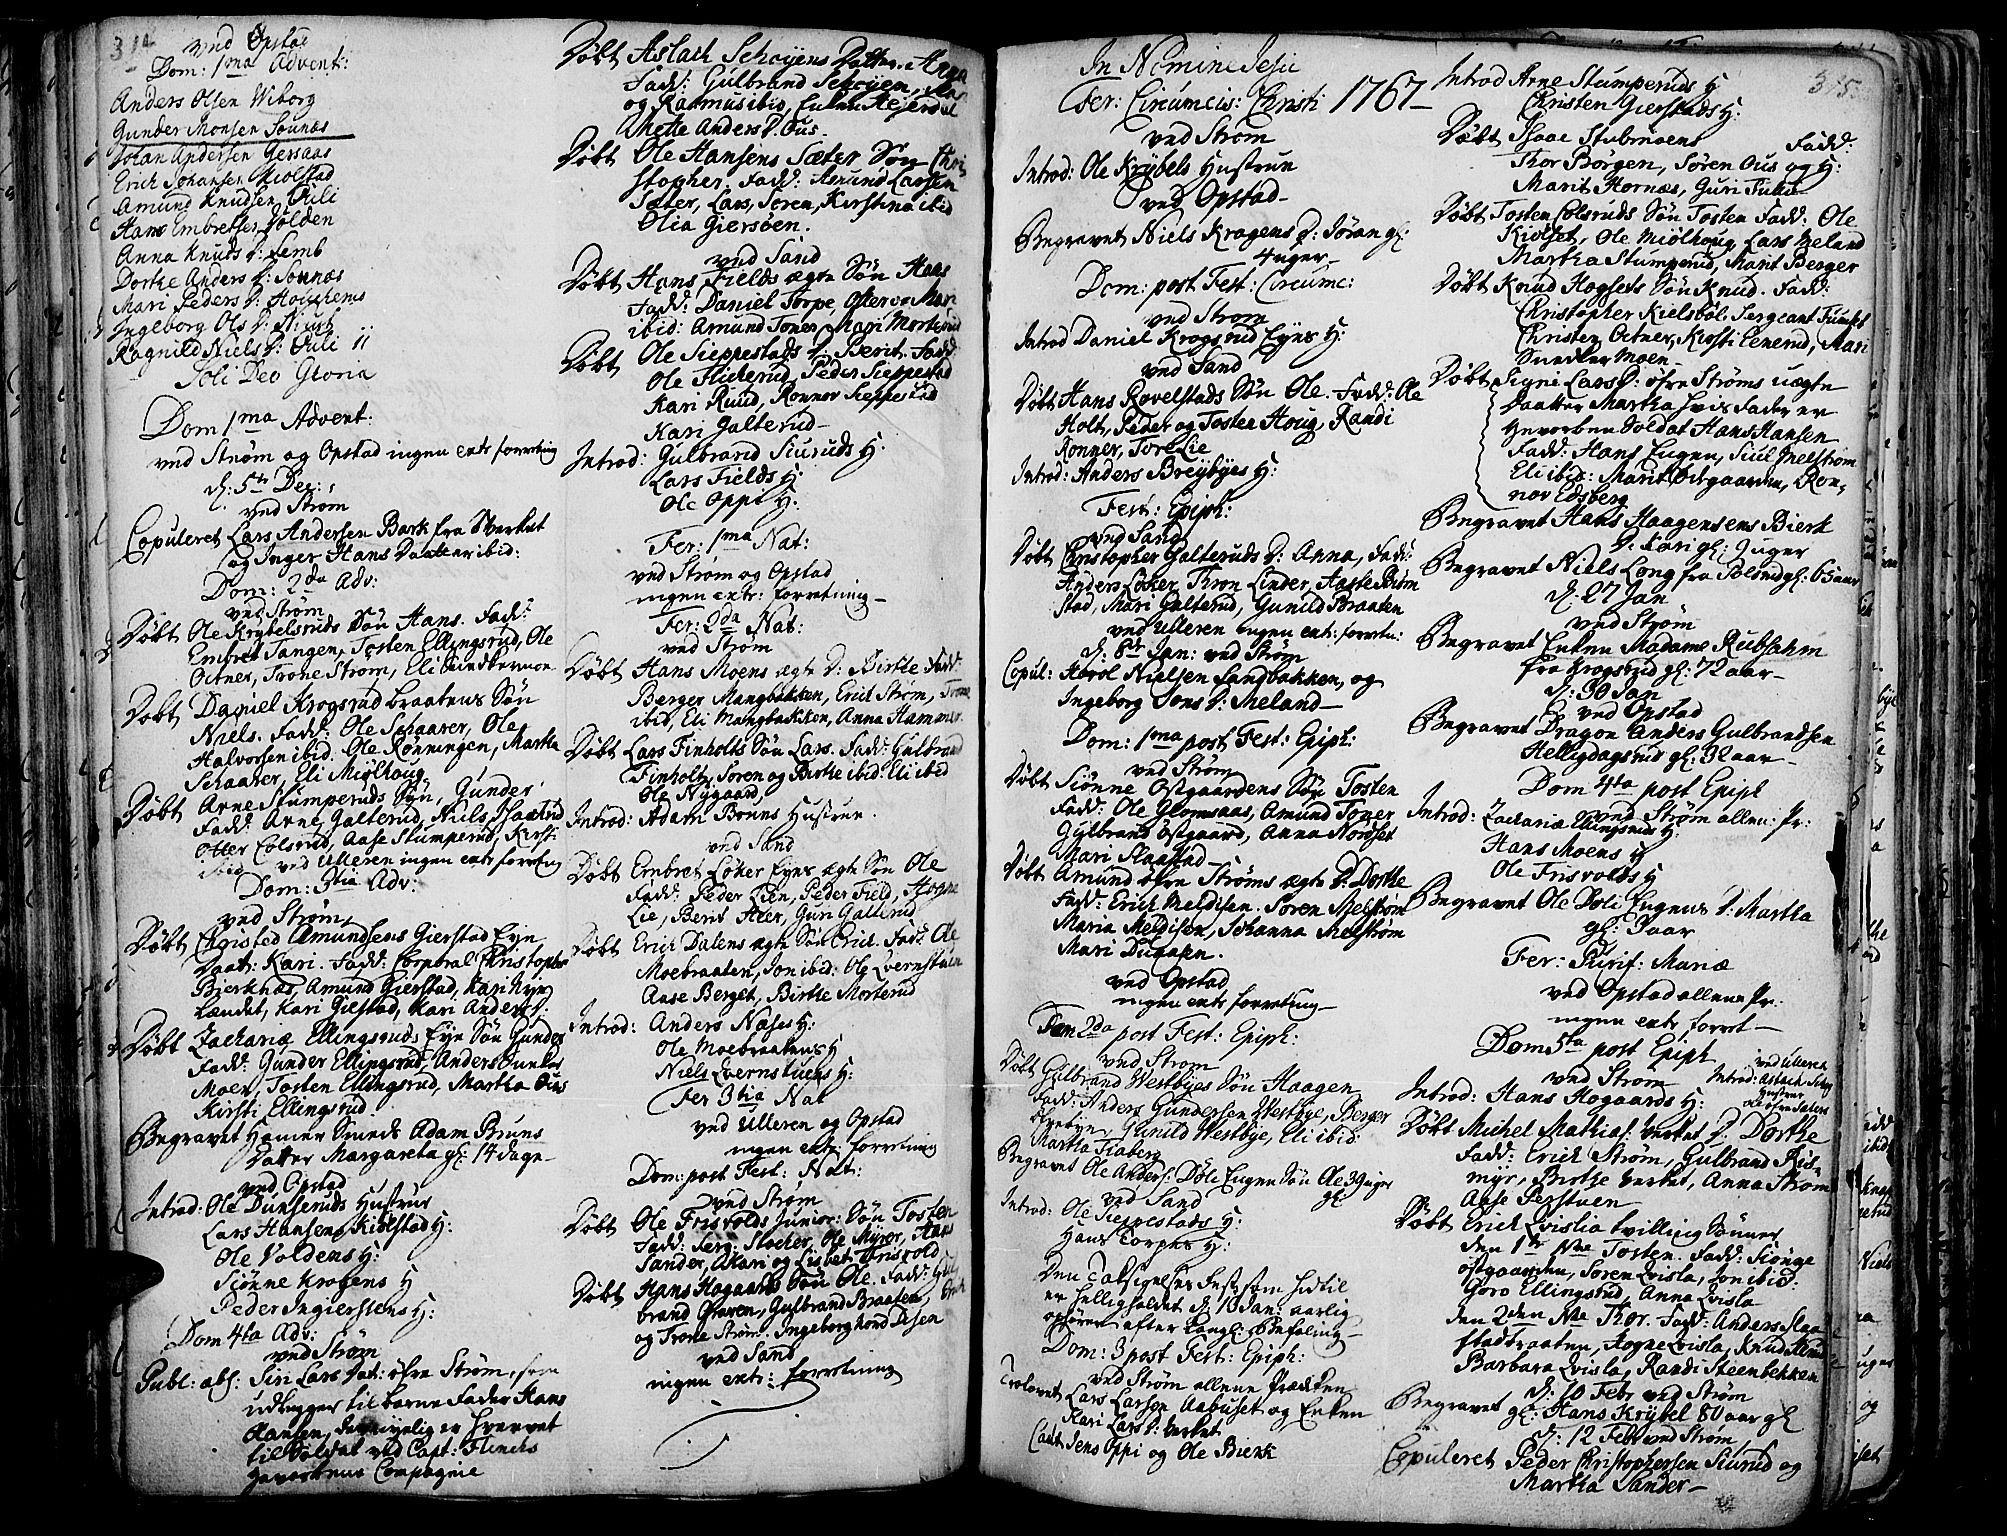 314
ved Opstad
Dom: 1ma Advent:
Anders Olsen Wiborg
Gunder Monsen Sounæs
Johan Andersen Gersaas
Erich Johansen Miolstad
Amund Knudsen Ouli
Hans Embretsen Volden
Anna Knuds D: Lemb
Dorthe Anders D: Sounæs
Mari Peders D:
Ingeborg Ols D:
Ragnild Niels D: Ouli 11
Soli Deo Gloria
Dom 1ma Advent:
ved Strøm og Opstad ingen extr forretning
d: 5te Dec:
ved Strøm
Copuleret Lars Andersen Bark fra Verket
og Inger Hans Daatter ibid:
Dom: 2da Adv:
ved Strøm
Døbt Ole Krybelsruds Søn Hans. Fadd:
Embret Tangen, Tosten Ellingsrud, Ole
Oitner, Trone Strøm, Eli Sundbermoe
Døbt Daniel Krogsrud braatens Søn
Niels. Fadd: Ole Schaarer, Ole
Halvorsen ibid. Ole Rønningen, Martha
Schaarer, Eli Miølhoug
Døbt Arne Stumperuds Søn, Gunder
Fadd: Arne Galterud, Niels
Otter Colsrud, Aase Stumperud, Kirsti
ibid ved Ulleren ingen extr forretng
Dom: 3tia Adv:
ved Strøm
Døbt Christen Amundsens Gierstad Eyn
Daatr: Kari. Fadd: Corporal Christopher
Bierknæs, Amund Gierstad, Kari
Lændet, Kari Gilstad, Kari Anders D:
Døbt Zachariæ Ellingsruds Eyn Søn Gunder
Fadd: Gunder Ellingsrud, Anders Sunder
Moen, Tosten Ellingsrud, Martha Ous
Kirsti Ellingsrud.
Begravet Hamer Smeds Adam Bruns
Datter Margareta gl: 14 dage
ved Opstad
Introd: Ole Dunseruds Hustrue
Lars Hansens Kielstad H:
Ole Voldens H:
Siønne Krogens H
Peder Ingierstens H:
Dom 4ta Adv:
ved Strøm
Publ: abs: Siri Lars Dat: øfre Strøm, som
udlegger til barne Fader Hans
Hansen,
til Soldat ved Capt: Flinchs
geworbene Compagnie
Døbt Aslach Schøyens Datter Anna
Fadd: Gulbrand Schøyen,
og Rasmus ibid, Enken Rejersøl
Mette Anders D: Ous.
Døbt Ole Hansens Sæter Søn Chri
stopher. Fadd: Amund Larsen
Sæter, Lars, Soren, Kirstina ibid
Olia Giersøen.
ved Sand
Døbt Hans Fields ægte Søn Hans
Fadd: Daniel Torpe, Otter og Mari
ibid: Amund Toner, Mari Morterud
Døbt Ole Sieppestads D Berit. Fadd:
Ole Flicherud, Peder Sieppestad
Kari Ruud, Ronnor Sieppestad
Kari Galterud
Introd: Gulbrand Siuruds H:
Lars Fields H:
Ole Oppi H:
Fer: 1ma Nat:
ved Strøm og Opstad
ingen extr: forretning
Fer: 2da Nat:
ved Strøm
Døbt Hans Moens ægte D: Birthe Fadd:
Berger Mangbakken, Erich Strøm, Trone
ibid, Eli Mangbakken, Anna Hammer
Døbt Lars Finholts Søn Lars. Fadd: Gulbrand
Finholt, Soren og Birthe ibid: Eli ibid
Ole Nygaard
Introd: Adam Bruns Hustrue.
ved Sand
Døbt Embret Løker Eyes ægte Søn Ole
Fadd: Peder Lien, Peder Field, Aagne
Lie, Berit Heer, Guri Galterud
Døbt Erich Dalens ægte Søn Erich. Fadd: Ole
Moebraaten, Jon ibid: Ole Qvernstuen
Aase Berget, Birthe Morterud
Introd: Anders Næses H:
Ole Moebraatens H
Niels Qvernstuens H:
Fer 3tia Nat
ved Ulleren og Opstad
ingen extr: forretning
Dom: post Fest: Nat:
ved Strøm
Døbt Ole Frisvolds Junior: Søn Tosten
Fadd: Serg: Stocher, Ole Myrer, Hans
Sander, Kari og Lisbet Frisvold
Døbt Hans Hogaards Søn Ole. Fadd: Gul
brand Graven, Gulbrand Braaten,
og Trone Strøm. Ingeborg hond Disen
ved Sand
ingen extr: forretning
In Nomine Jesu
Fer: Circumcis: Christi 1767
ved Strøm
Introd: Ole Krybels Hustrue
ved Opstad
Begravet Niels Kragens D: Søran gl:
4 uger
Dom: post Fest: Circumc:
ved Strøm
Introd Daniel Krogsrud Eyes H:
ved Sand
Døbt Hans Rovelstads Søn Ole. Fadd: Ole
Holt, Peder og Tosten Houg, Randi
Ronner, Tore Lie
Introd: Anders Breybyes H:
Fest: Epiph:
ved Sand
Døbt Christopher Galteruds D: Anna, Fadd:
Anders Løker, Thron Linder, Aaste Brøm
stad, Mari Galterud, Gunild Braaten
ved Ulleren ingen extr: forretn:
d: 8de Jan: ved Strøm
Copul: Harol Nielsen Sandbakken, og
Ingeborg Jons D: Meland
Dom: 1ma post Fest: Epiph:
ved Strøm
Døbt Siønne Ostgaardens Søn Tosten
Fadd: Ole Glomsaas, Amund Toner
Gulbrand Østgaard, Anna Norset
Mari Slaastad
Døbt Amund Øfre Strøms ægte D: Dorthe
Fadd: Erich Meldisen. Soren Melstrøm
Maria Meldisen, Johanna Melstrøm
Mari Dugasen.
ved Opstad
ingen extr forretning
Dom 2da post Fest: Epiph:
ved Strøm
Døbt Gulbrand Westbyes Søn Haagen
Fadd: Anders Gundersen Westbye, Berger
Øvrebye, Gunild Westbye, Eli ibid:
Martha Tiaberg
Begravet Ole Anders: Døli Eugen Søn Ole 3 uger gl
ved Sand
Introd: Ole Sieppestads H:
Hans Torpes H:
Den Taksigelses Fest som hidtil
er helligholdet d: 10 Jan: aarlig
ophører efter Kongl: Befaling
Dom: 3 post Fest: Epiph:
ved Strøm allene Prædiken
Trolovet Lars Larsen Aabuset og Enken
Kari Lars D: Verket
Caut Jens Oppi og Ole Bierk
315
Introd Arne Stumperuds H
Christen Gierstads H:
Døbt Isaac Stubmoens Fadd:
Thor Børgen, Søren Ous og H:
Marit Hornæs, Guri
Døbt Tosten Colsruds Søn Tosten Fadd: Ole
Kiølset, Ole Miølhoug Lars Meland
Martha Stumperud, Marit Berger
Døbt Knud Hogsets Søn Knud. Fadd:
Christopher Kielsbøl. Sergeant
Christen Oitner, Kirsti Eenerud, Mari
Snedker moen
Døbt Signi Lars D: øfre Strøms uægte
Daatter Martha hvis Fader er
geworben Soldat Hans Hansen
Fadd: Hans Eugen, Siul Melstrøm
Eli ibid: Marit Østgaarden, Ron
nor Edsberg
Begravet Hans Haagensens Bierk
D: Kari gl: 9 uger
Begravet Niels Long fra gl: 65 aar
d: 27 Jan
ved Strøm
Begravet Enken Madame Rubsahm
fra Krogsrud gl: 72 aar
d: 30 Jan
ved Opstad
Begravet Dragon Anders Gulbrandsen
Helligdagsrud gl: 32 aar
Dom 4ta post Epiph
ved Strøm allen: Pr:
Introd: Zachariæ Ellingsruds H:
Hans Moens H
Ole Frisvolds H
Begravet Ole Døli Eugens D: Martha
gl: 3 aar
Fer: Purif: Mariæ
ved Opstad allene Pr:
ingen extr forret
Dom 5ta post Epiph
ved Strøm
ved Ulleren
Introd: Aslach
Hustrue
Ole Øfre Sæters
Introd: Hans Hogaards H:
Døbt Michel Mathias: Verket D: Dorthe
Fadd: Erich Strøm, Gulbrand Ris-
myr, Birthe Verket, Anna Strøm
Aase Perstuen
Døbt Erich Qvislia tvilling Sønner
den 1ste Nne Tosten. Fadd: Siønge
Østgaarden, Soren Qvisla, Jon ibid:
Goro Ellingsrud, Anna Qvisla
den 2den Nne Thor. Fadd: Anders Slaa
stadbraaten, Aagne Qvisla, Knud
Barbara Qvisla, Randi Steenbekken
d: 10 Febr ved Strøm
Begravet gl: Hans Krybel 80 aar gl
d: 12 Febr ved Strøm
Copuleret Peder Christophersen Siurud og
Martha Sander